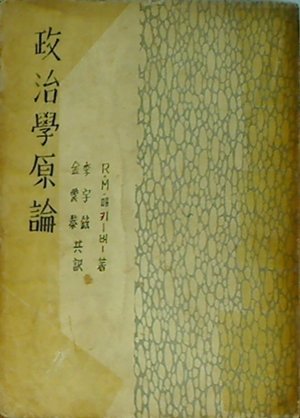 政治學原論
R·M·매키—버—著
李宇鉉
金愛泰 共訳